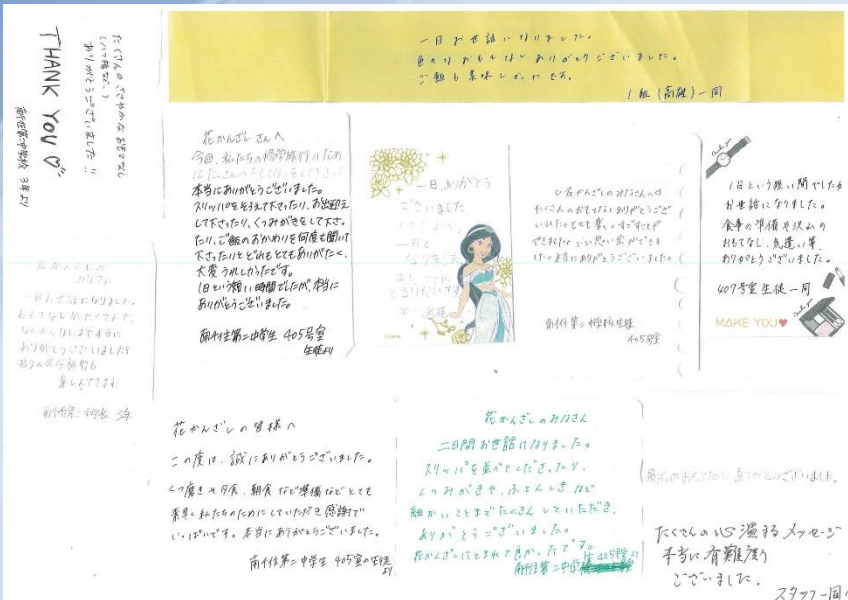 一日お世話になりました。
色々なおもてなしありがとうございました。
ご飯も美味しかったです。
1組(高雄)一同
たくさんのささやかなおもてなし
ありがとうございました!!
THANK YOU♡
南千住第二中学校 3年より
花かんざしさんへ
今回、私たちの修学旅行のため
にたくさんのおもてなしをして下さって
本当にありがとうございました。
スリッパをそろえて下さったり、お出迎え
して下さったり、くつみがきをして下さっ
たり、ご飯のおかわりを何度も聞いて
下さったりとどれもとてもありがたく、
大変うれしかったです。
1日という短い時間でしたが、本当に
ありがとうございました。
南千住第二中学生 405号室
生徒より
一日、ありがとう
ございました
♡花かんざしのみなさんへ♡
たくさんのおもてなしありがとうござ
いました とても楽しくすごすことが
できました いい思い出ができま
した 本当にありがとうございました
南千住第二中学校生徒
405号室
1日という短い間でしたが
お世話になりました。
食事の準備や沢山の
おもてなし、気遣い等、
ありがとうございました。
407号室生徒一同
MAKE YOU♥
花かんざしの
みなさん
一日お世話になりました。
ありがとうございました
楽しんできます!
3年
花かんざしの皆様へ
この度は、誠にありがとうございました。
くつ磨きや夕食、朝食など準備などとても
素早く私たちのためにしていただき感謝で
いっぱいです。本当にありがとうございました。
南千住第二中学生 405室の生徒
より
花かんざしのみなさん
二日間お世話になりました。
スリッパを並べてくださったり、
くつみがきや、ふとんしきなど
細かいことまでたくさんしていただき、
ありがとうございました。
花かんざしにとまれて良かったです。
南千住第二中学生 405号室より
最高のおもてなし、ありがとうございました。
たくさんの心温まるメッセージ
本当に有難う
ございました。
スタッフ一同